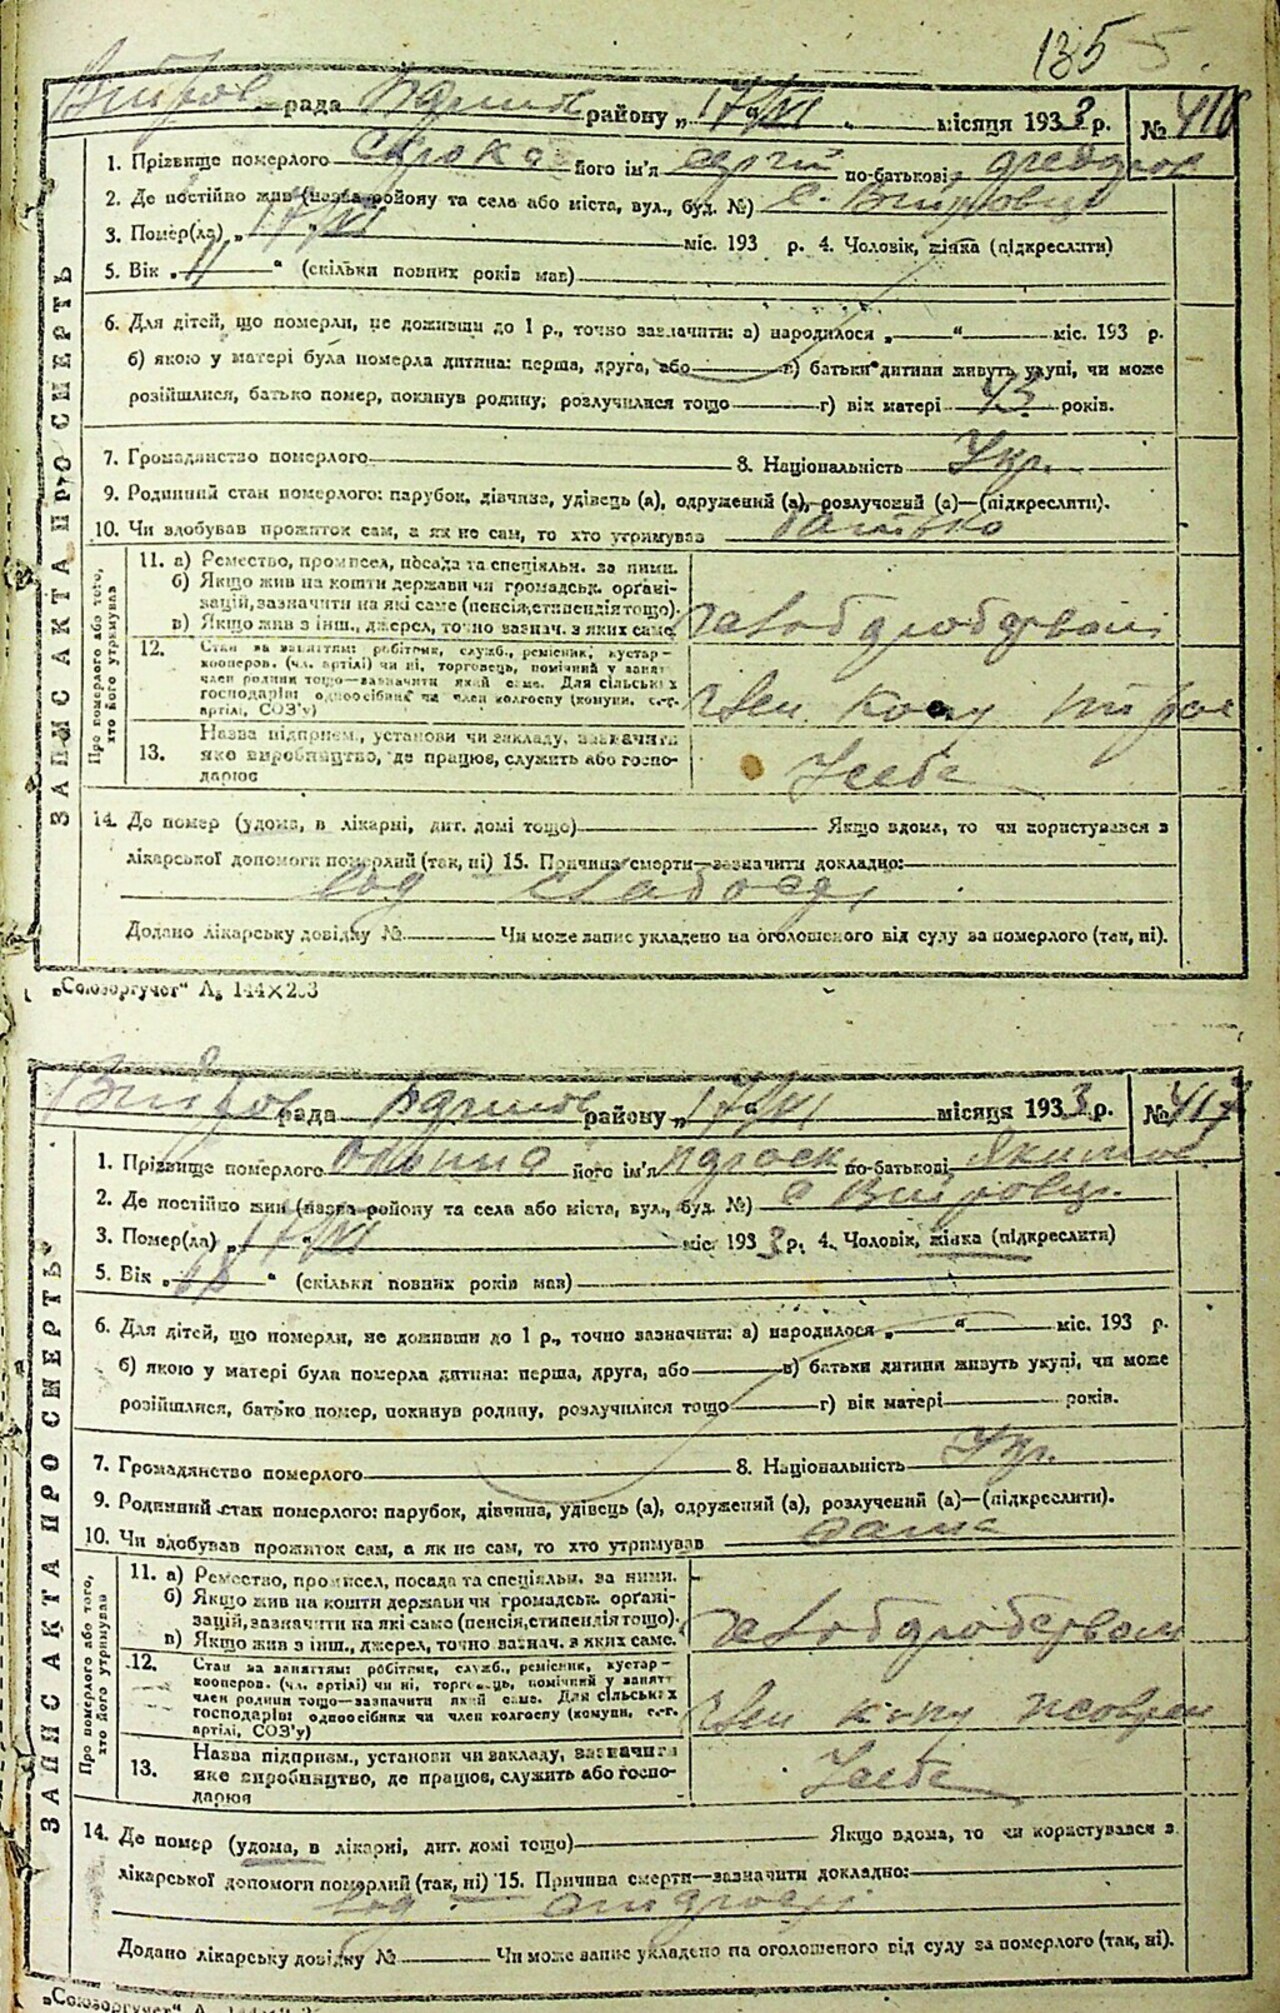 135
рада району „17/VI“ місяця 1933 р. № 416
1. Прізвище померлого його ім'я Сергій по-батькові
2. Де постійно жив (назва району та села або міста, вул., буд. №) с.
3. Помер(ла) „17/VI“ міс. 193 р. 4. Чоловік, жінка (підкреслити)
5. Вік „11“ (скільки повних років мав)
6. Для дітей, що померли, не доживши до 1 р., точно зазначити: а) народилося „ “ міс. 193 р.
б) якою у матері була померла дитина: перша, друга, або в) батьки дитини живуть укупі, чи може
розійшлися, батько помер, покинув родину, розлучилися тощо г) вік матері 43 років.
7. Громадянство померлого 8. Національність Укр.
9. Родинний стан померлого: парубок, дівчина, удівець (а), одружений (а), розлучений (а)—(підкреслити).
10. Чи здобував прожиток сам, а як не сам, то хто утримував батько
ЗАПИС АКТА ПРО СМЕРТЬ
Про померлого або того, хто його утримував
11. а) Ремество, промисел, посада та спеціяльн. за ними.
б) Якщо жив на кошти держави чи громадськ. органі-
зацій, зазначити на які саме (пенсія, стипендія тощо).
в) Якщо жив з інш., джерел, точно зазнач. з яких саме.
12. Стан за заняттям: робітник, служб., ремісник, кустар-
кооперов. (чл. артілі) чи ні, торговець, помічний у занят.
член родини тощо—зазначити який саме. Для сільських
господарів: одноосібник чи член колгоспу (комуни, с.-г.
артілі, СОЗ'у)
13. Назва підприєм., установи чи закладу, зазначити
яке виробництво, де працює, служить або госпо-
дарює
14. Де помер (удома, в лікарні, дит. домі тощо) Якщо вдома, то чи користувався з
лікарської допомоги померлий (так, ні) 15. Причина смерти—зазначити докладно:
Додано лікарську довідку № Чи може запис укладено на оголошеного від суду за померлого (так, ні).
„Союзоргучет“ А₅ 144×203
рада району „17/VI“ місяця 1933 р. № 417
1. Прізвище померлого його ім'я по-батькові
2. Де постійно жив (назва району та села або міста, вул., буд. №) с.
3. Помер(ла) „17/VI“ міс. 1933 р. 4. Чоловік, жінка (підкреслити)
5. Вік „ “ (скільки повних років мав)
6. Для дітей, що померли, не доживши до 1 р., точно зазначити: а) народилося „ “ міс. 193 р.
б) якою у матері була померла дитина: перша, друга, або в) батьки дитини живуть укупі, чи може
розійшлися, батько помер, покинув родину, розлучилися тощо г) вік матері років.
7. Громадянство померлого 8. Національність Укр.
9. Родинний стан померлого: парубок, дівчина, удівець (а), одружений (а), розлучений (а)—(підкреслити).
10. Чи здобував прожиток сам, а як не сам, то хто утримував сама
ЗАПИС АКТА ПРО СМЕРТЬ
Про померлого або того, хто його утримував
11. а) Ремество, промисел, посада та спеціяльн. за ними.
б) Якщо жив на кошти держави чи громадськ. органі-
зацій, зазначити на які саме (пенсія, стипендія тощо).
в) Якщо жив з інш., джерел, точно зазнач. з яких саме.
12. Стан за заняттям: робітник, служб., ремісник, кустар-
кооперов. (чл. артілі) чи ні, торговець, помічний у занятт
член родини тощо—зазначити який саме. Для сільських
господарів: одноосібник чи член колгоспу (комуни, с.-г.
артілі, СОЗ'у)
13. Назва підприєм., установи чи закладу, зазначити
яке виробництво, де працює, служить або госпо-
дарює
14. Де помер (удома, в лікарні, дит. домі тощо) Якщо вдома, то чи користувався з
лікарської допомоги померлий (так, ні) 15. Причина смерти—зазначити докладно:
Додано лікарську довідку № Чи може запис укладено на оголошеного від суду за померлого (так, ні).
„Союзоргучет“